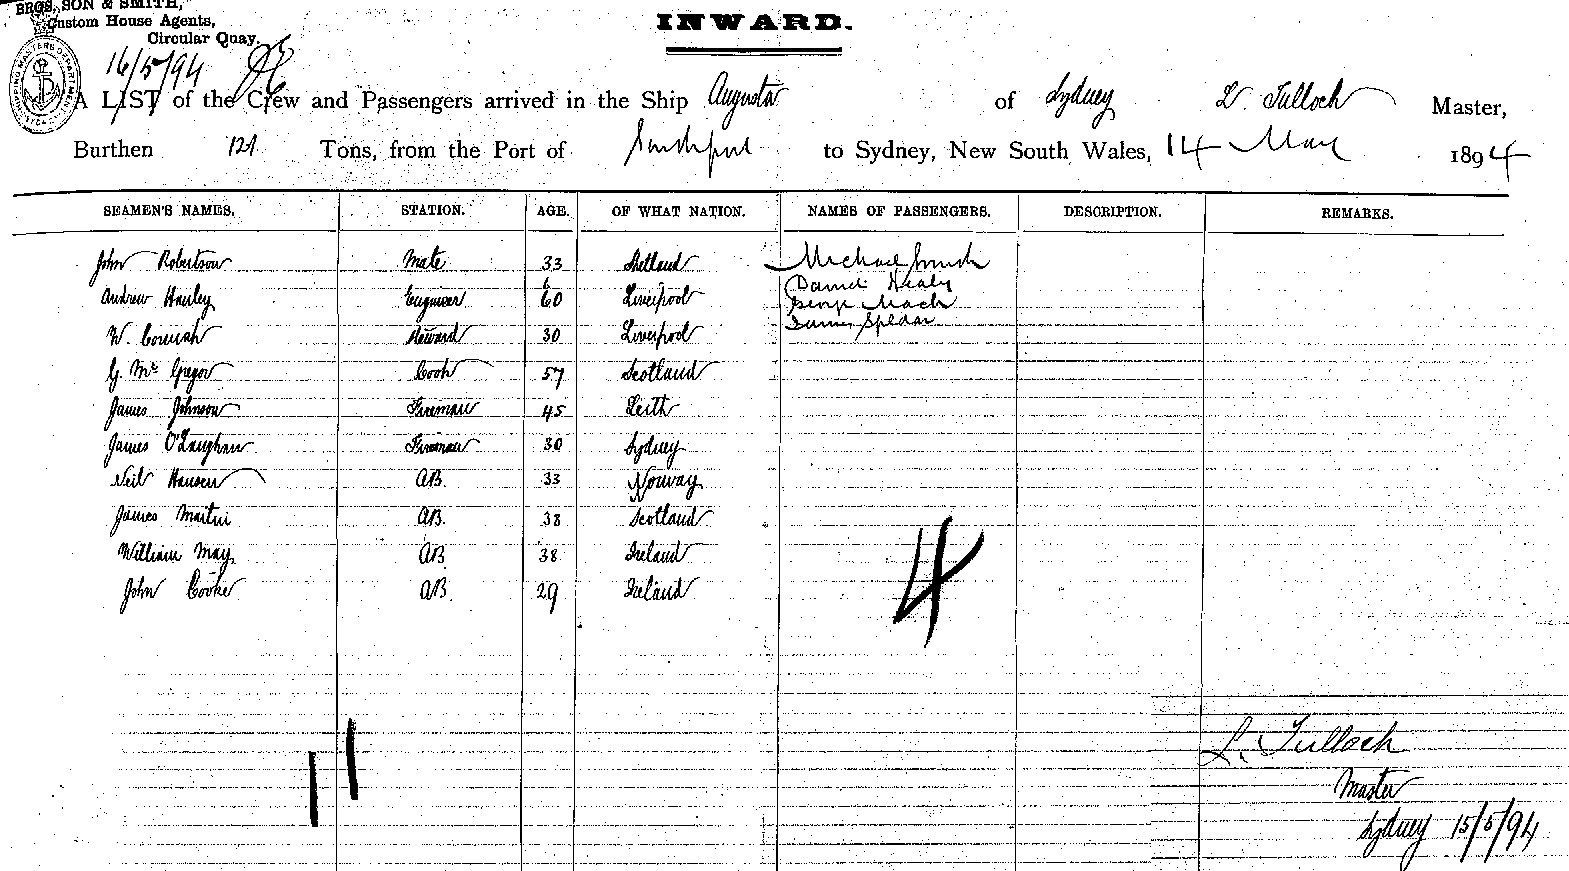 BROS, SON & SMITH,
Custom House Agents,
Circular Quay.
16/5/94
INWARD.
A LIST of the Crew and Passengers arrived in the Ship Augusta of Sydney L. Tulloch Master,
Burthen 121 Tons, from the Port of Southport to Sydney, New South Wales, 14 May 1894
SEAMEN'S NAMES. STATION. AGE. OF WHAT NATION. NAMES OF PASSENGERS. DESCRIPTION. REMARKS.
John Robertson Mate 33 Shetland Michael Smith
Andrew Hanley Engineer 60 Liverpool Daniel Healy
George
W. Cornish Steward 30 Liverpool James
G. Mc Gregor Cook 57 Scotland
James Johnson Fireman 45 Leith
James O'Laughlan Fireman 30 Sydney
Neil Hansen AB. 33 Norway
James Martin AB. 38 Scotland
William May AB 38 Ireland
John Cooke AB. 29 Ireland
4
11
L. Tulloch
Master
Sydney 15/5/94